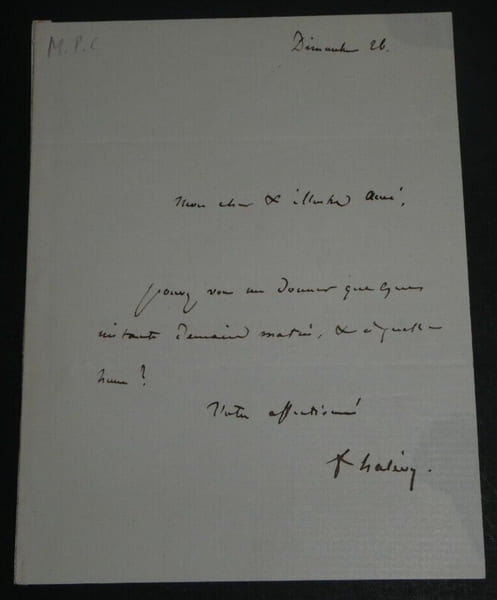 M.P.C
Dimanche 26.
Mon cher & illustre ami,
pouvez vous me donner quelques
instants demain matin, & à quelle
heure ?
Votre affectionné
F halévy.